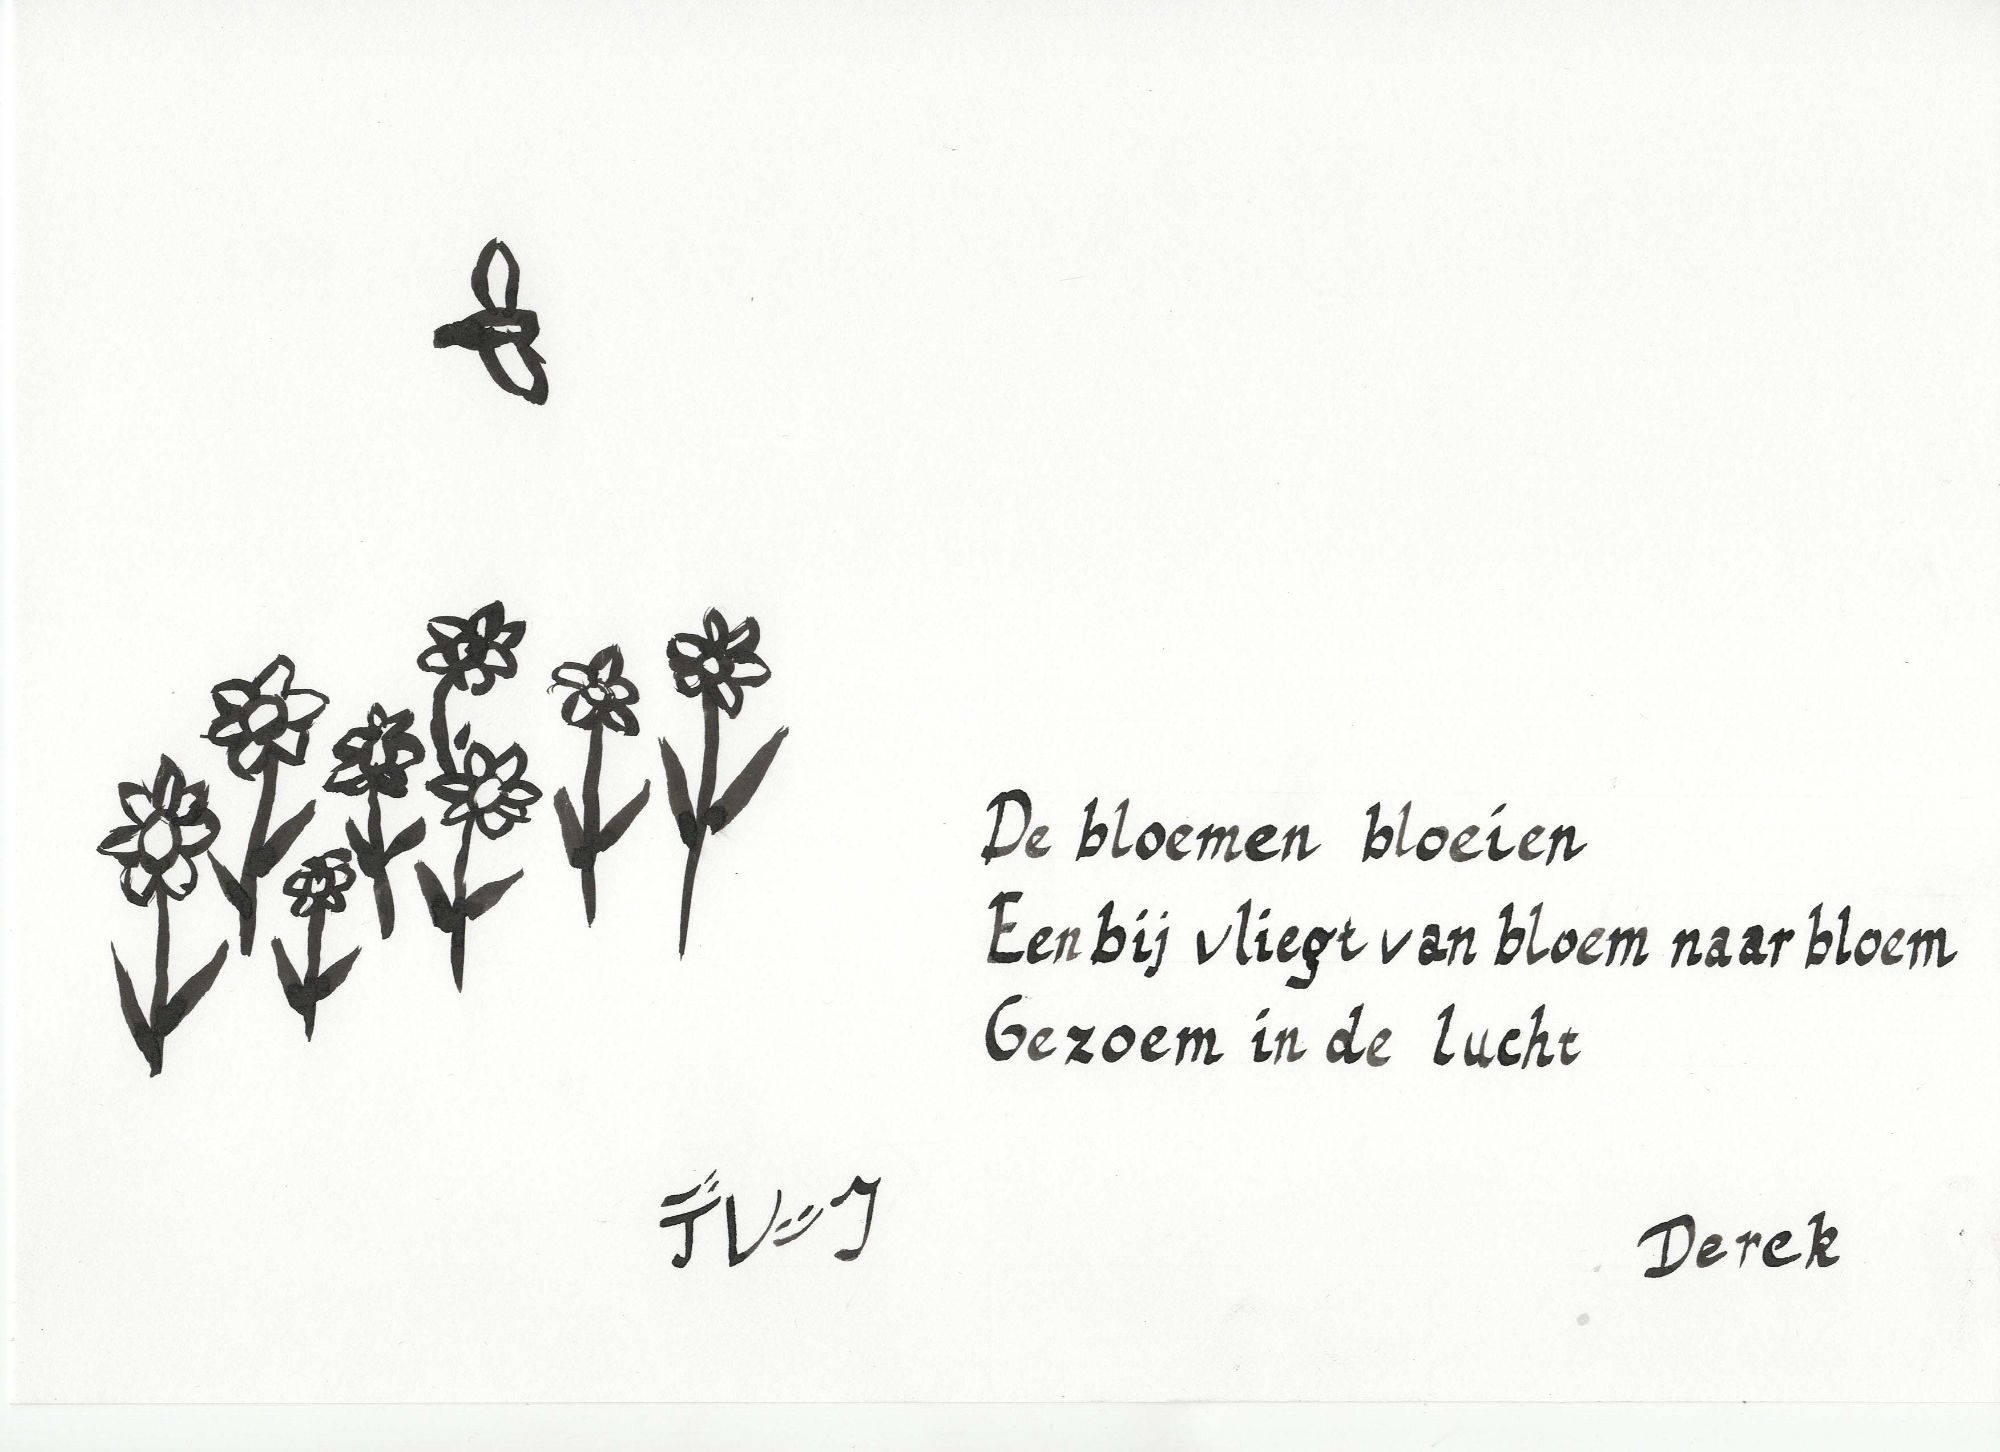 De bloemen bloeien
Een bij vliegt van bloem naar bloem
Gezoem in de lucht
デレック
Derek